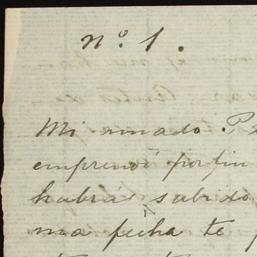 nº 1.
Mi amado
emprendí por fin
habrá sabido
ma fecha te